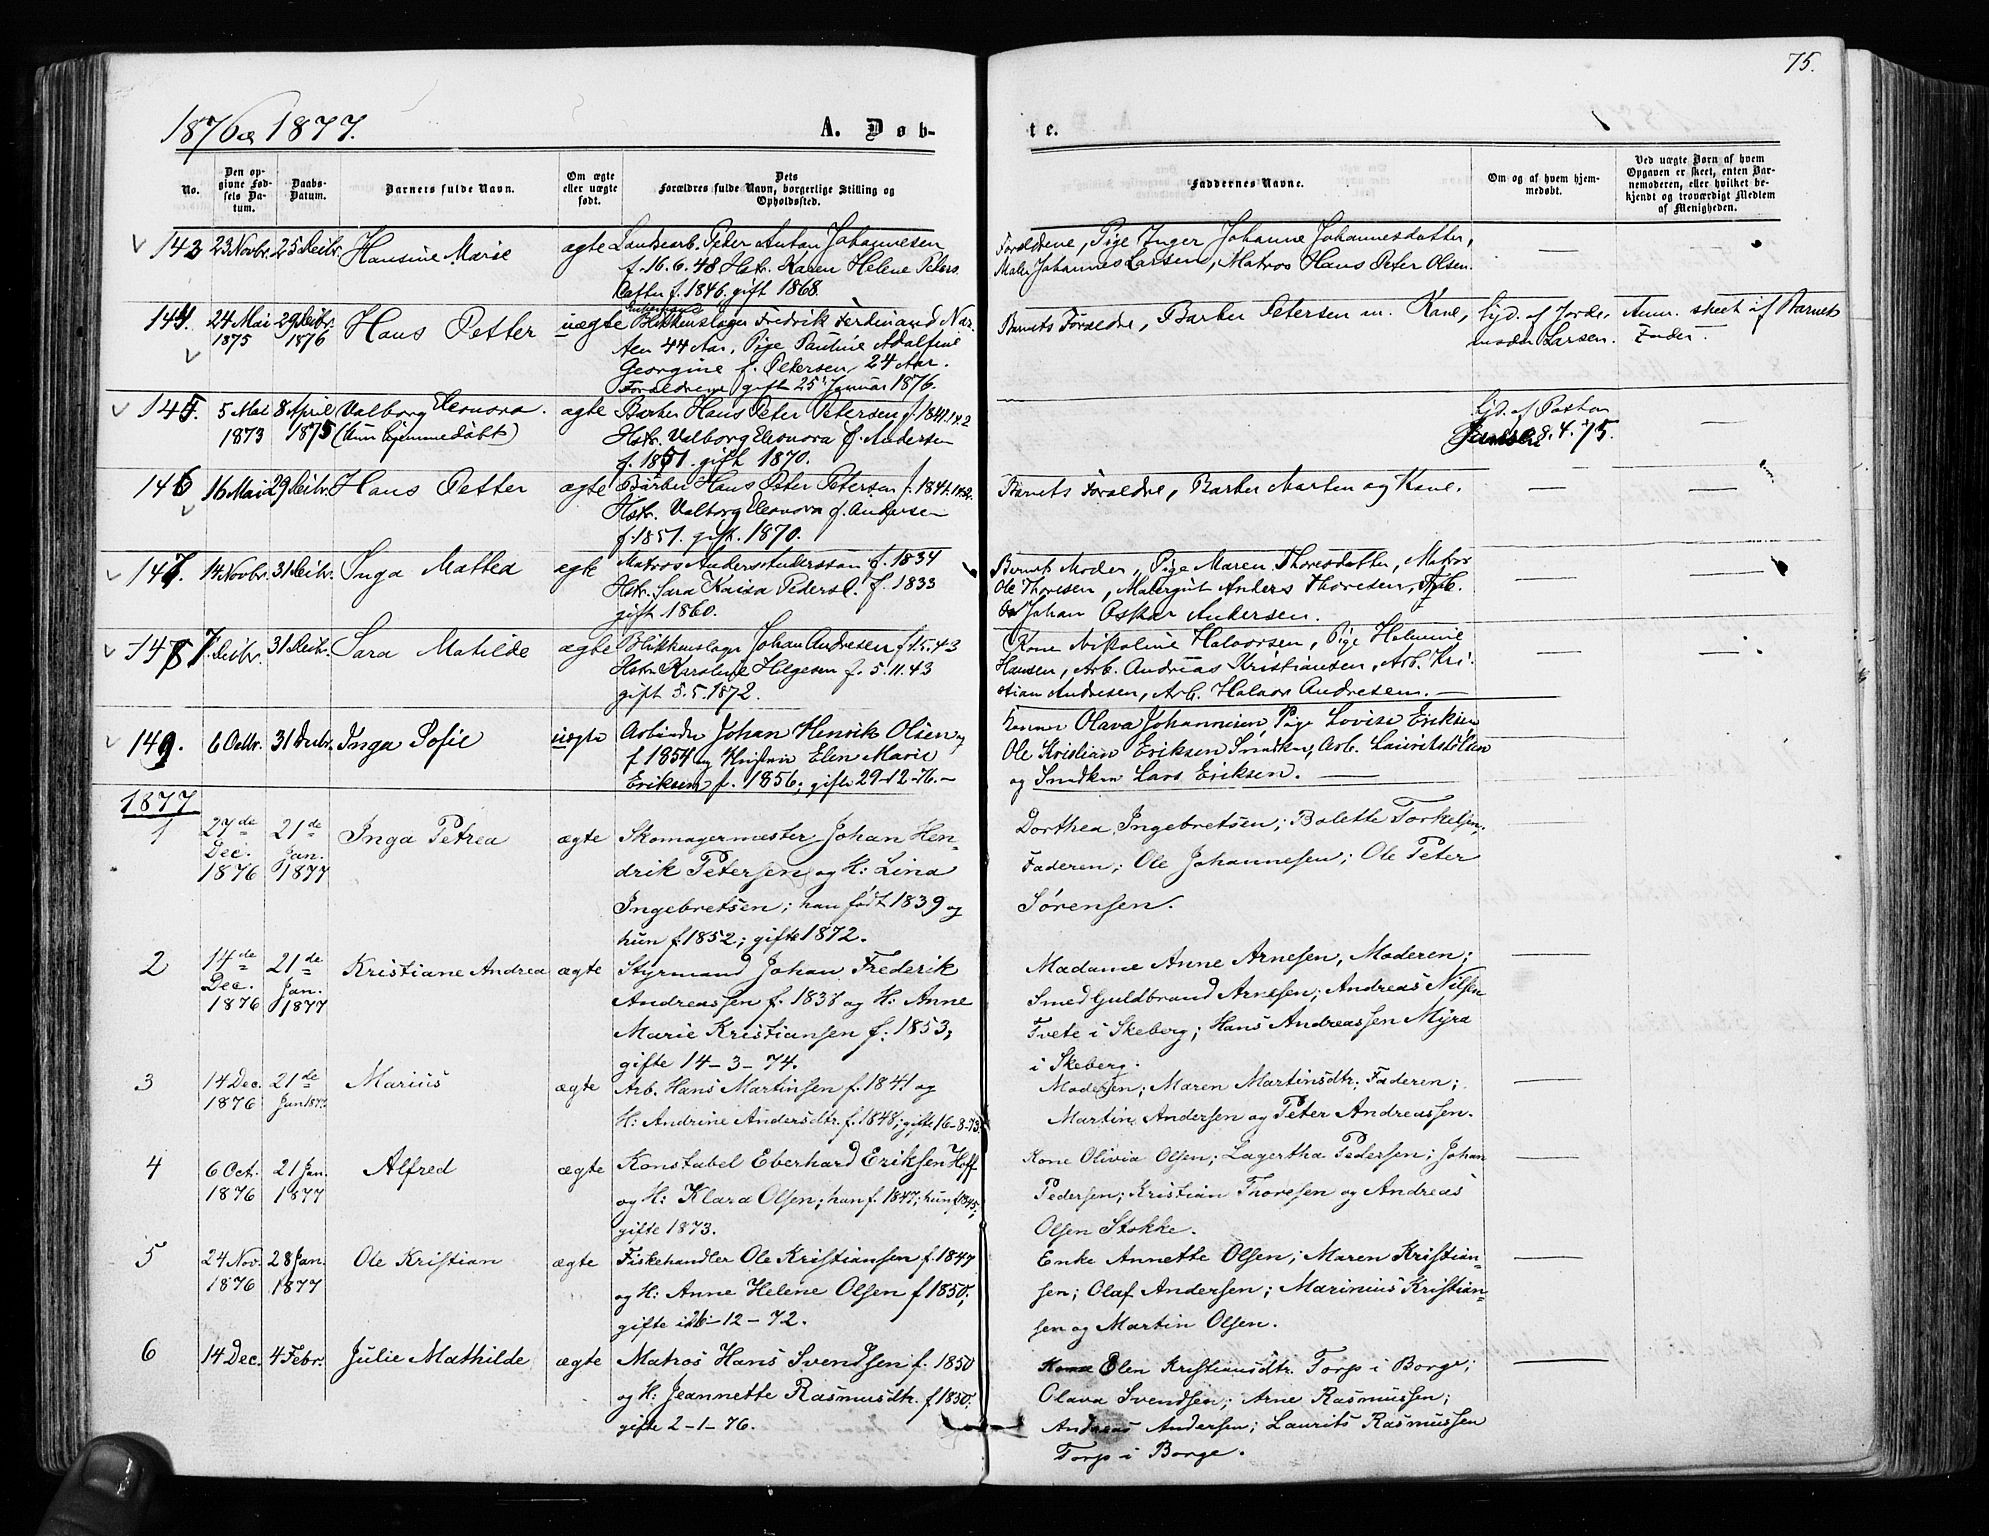 75.
1876 og 1877.
A. Døb-
te.
No.
Den op-
givne Fød-
sels Da-
tum.
Daabs-
Datum.
Barnets fulde Navn.
Om ægte
eller uægte
født.
Dets
Forældres fulde Navn, borgerlige Stilling og
Opholdssted.
Faddernes Navne.
Om og af hvem hjem-
medøbt.
Ved uægte Børn af hvem
Opgaven er skeet, enten Bar-
nemoderen, eller hvilket be-
kjendt og troværdigt Medlem
af Menigheden.
143 23 Novbr. 25 Decbr. Hansine Marie ægte Landsarb. Peter Anton Johannesen
f. 16.6.48 Hstr. Karen Helene Peters
datter f. 1846. gift 1868.
Forældrene, Pige Inger Johanne Johannesdatter,
Maler Johannes Larsen, Matros Hans Peter Olsen.
144. 24 Mai 1875 29 Decbr. 1876 Hans Petter uægte Blikkenslager Fredrik Ferdinand
44 Aar, Pige Pauline
Georgine f. Petersen, 24 Aar.
Forældrene gift 25 Januar 1876.
Barnets Forældre, Barber Petersen m. Kone,
hjd. af Jorde-
moder Larsen.
Anm. skeet af Barnets
Fader.
145. 5 Mai 1873 8 April 1875 Valborg Eleonora.
(Kun hjemmedøbt)
ægte Barber Hans Peter Petersen f. 1841.14.2
Hstr. Valborg Eleonora f. Andersen
f. 1851. gift 1870.
hjd. af Pastor
8.4.75.
146 16 Mai 29 Decbr. Hans Petter ægte Barber Hans Peter Petersen f. 1841.14.2
Hstr. Valborg Eleonora f. Andersen
f. 1851. gift. 1870.
Barnets Forældre, Barber Morten og Kone.
147. 14 Novbr. 31 Decbr. Inga Mathea egte Matros Anders Andersson f. 1834
Hstr. Sara Kaisa Pedersd. f. 1833
gift 1860.
Barnets Moder, Pige Maren Thoresdatter, Matros
Ole Thoresen, Malergut Anders Thoresen,
Johan Oskar Andersen.
148 7 Decbr. 31 Decbr. Sara Matilde ægte Blikkenslager Johan Andresen f. 1.5.43
Hstr. Karoline Helgesen f. 5.11.43
gift 5.5.1872.
Kone Nikoline Halvorsen, Pige Helmine
Hansen, Arb. Andreas Kristiansen, Arb. Kri-
stian Andresen, Arb. Halvor Andresen.
149. 6 Octbr. 31 Decbr. Inga Sofie uægte Arbeider Johan Henrik Olsen
f. 1854 og Elen Marie
Eriksen f. 1856; gifte 29-12-76.
Koner Olava Johannesen, Pige Lovise Eriksen,
Ole Kristian Eriksen Smeden, Arb. Laurits Olsen
og Smeden Lars Eriksen.
1877
1 27de Dec. 1876 21de Jan. 1877 Inga Petrea ægte Skomagermester Johan Hen-
drik Petersen og H: Lina
Ingebretsen; han født 1839 og
hun f. 1852; gifte 1872.
Dorthea Ingebretsen; Bolette Torkelsen;
Faderen; Ole Johannesen; Ole Peter
Sørensen.
2 14de Dec. 1876 21de Jan. 1877 Kristiane Andrea ægte Styrmand Johan Frederik
Andreassen f. 1838 og H: Anne
Marie Kristiansen f: 1853;
gifte 14-3-74.
Madame Anne Arnesen, Moderen;
Smed Guldbrand Arnesen; Andreas Nilsen
Tvete i Skeberg; Hans Andreassen Myra
i Skeberg.
3 14 Dec. 1876 21de Jan 1877 Marius ægte Arb. Hans Martinsen f. 1841 og
H: Andrine Andersdtr. f. 1848; gifte 16-8-73.
Moderen; Maren Martinsdtr. Faderen;
Martin Andersen og Peter Andreassen.
4 6 Oct. 1876 21 Jan. 1877 Alfred ægte Konstabel Eberhard Eriksen Hoff
og H: Klara Olsen; han f. 1847; hun f. 1845;
gifte 1873.
Kone Olivia Olsen; Lagertha Pedersen; Johan
Pedersen; Kristian Thoresen og Andreas
Olsen Stokke.
5 24 Nov. 1876 28 Jan. 1877 Ole Kristian ægte Fiskehandler Ole Kristiansen f. 1847
og H: Anne Helene Olsen f 1850;
gifte 26-12-72.
Enke Annette Olsen; Maren Kristian-
sen; Olaf Andersen; Marinius Kristian-
sen og Martin Olsen.
6 14 Dec. 4 Febr. Julie Mathilde ægte Matros Hans Svendsen f. 1850
og H: Jeannette Rasmusdtr. f 1850;
gifte 2-1-76.
Kone Elen Kristiansdtr. Torp i Borge;
Olava Svendsen; Arne Rasmussen;
Andreas Andersen; Laurits Rasmussen
Torp i Borge.